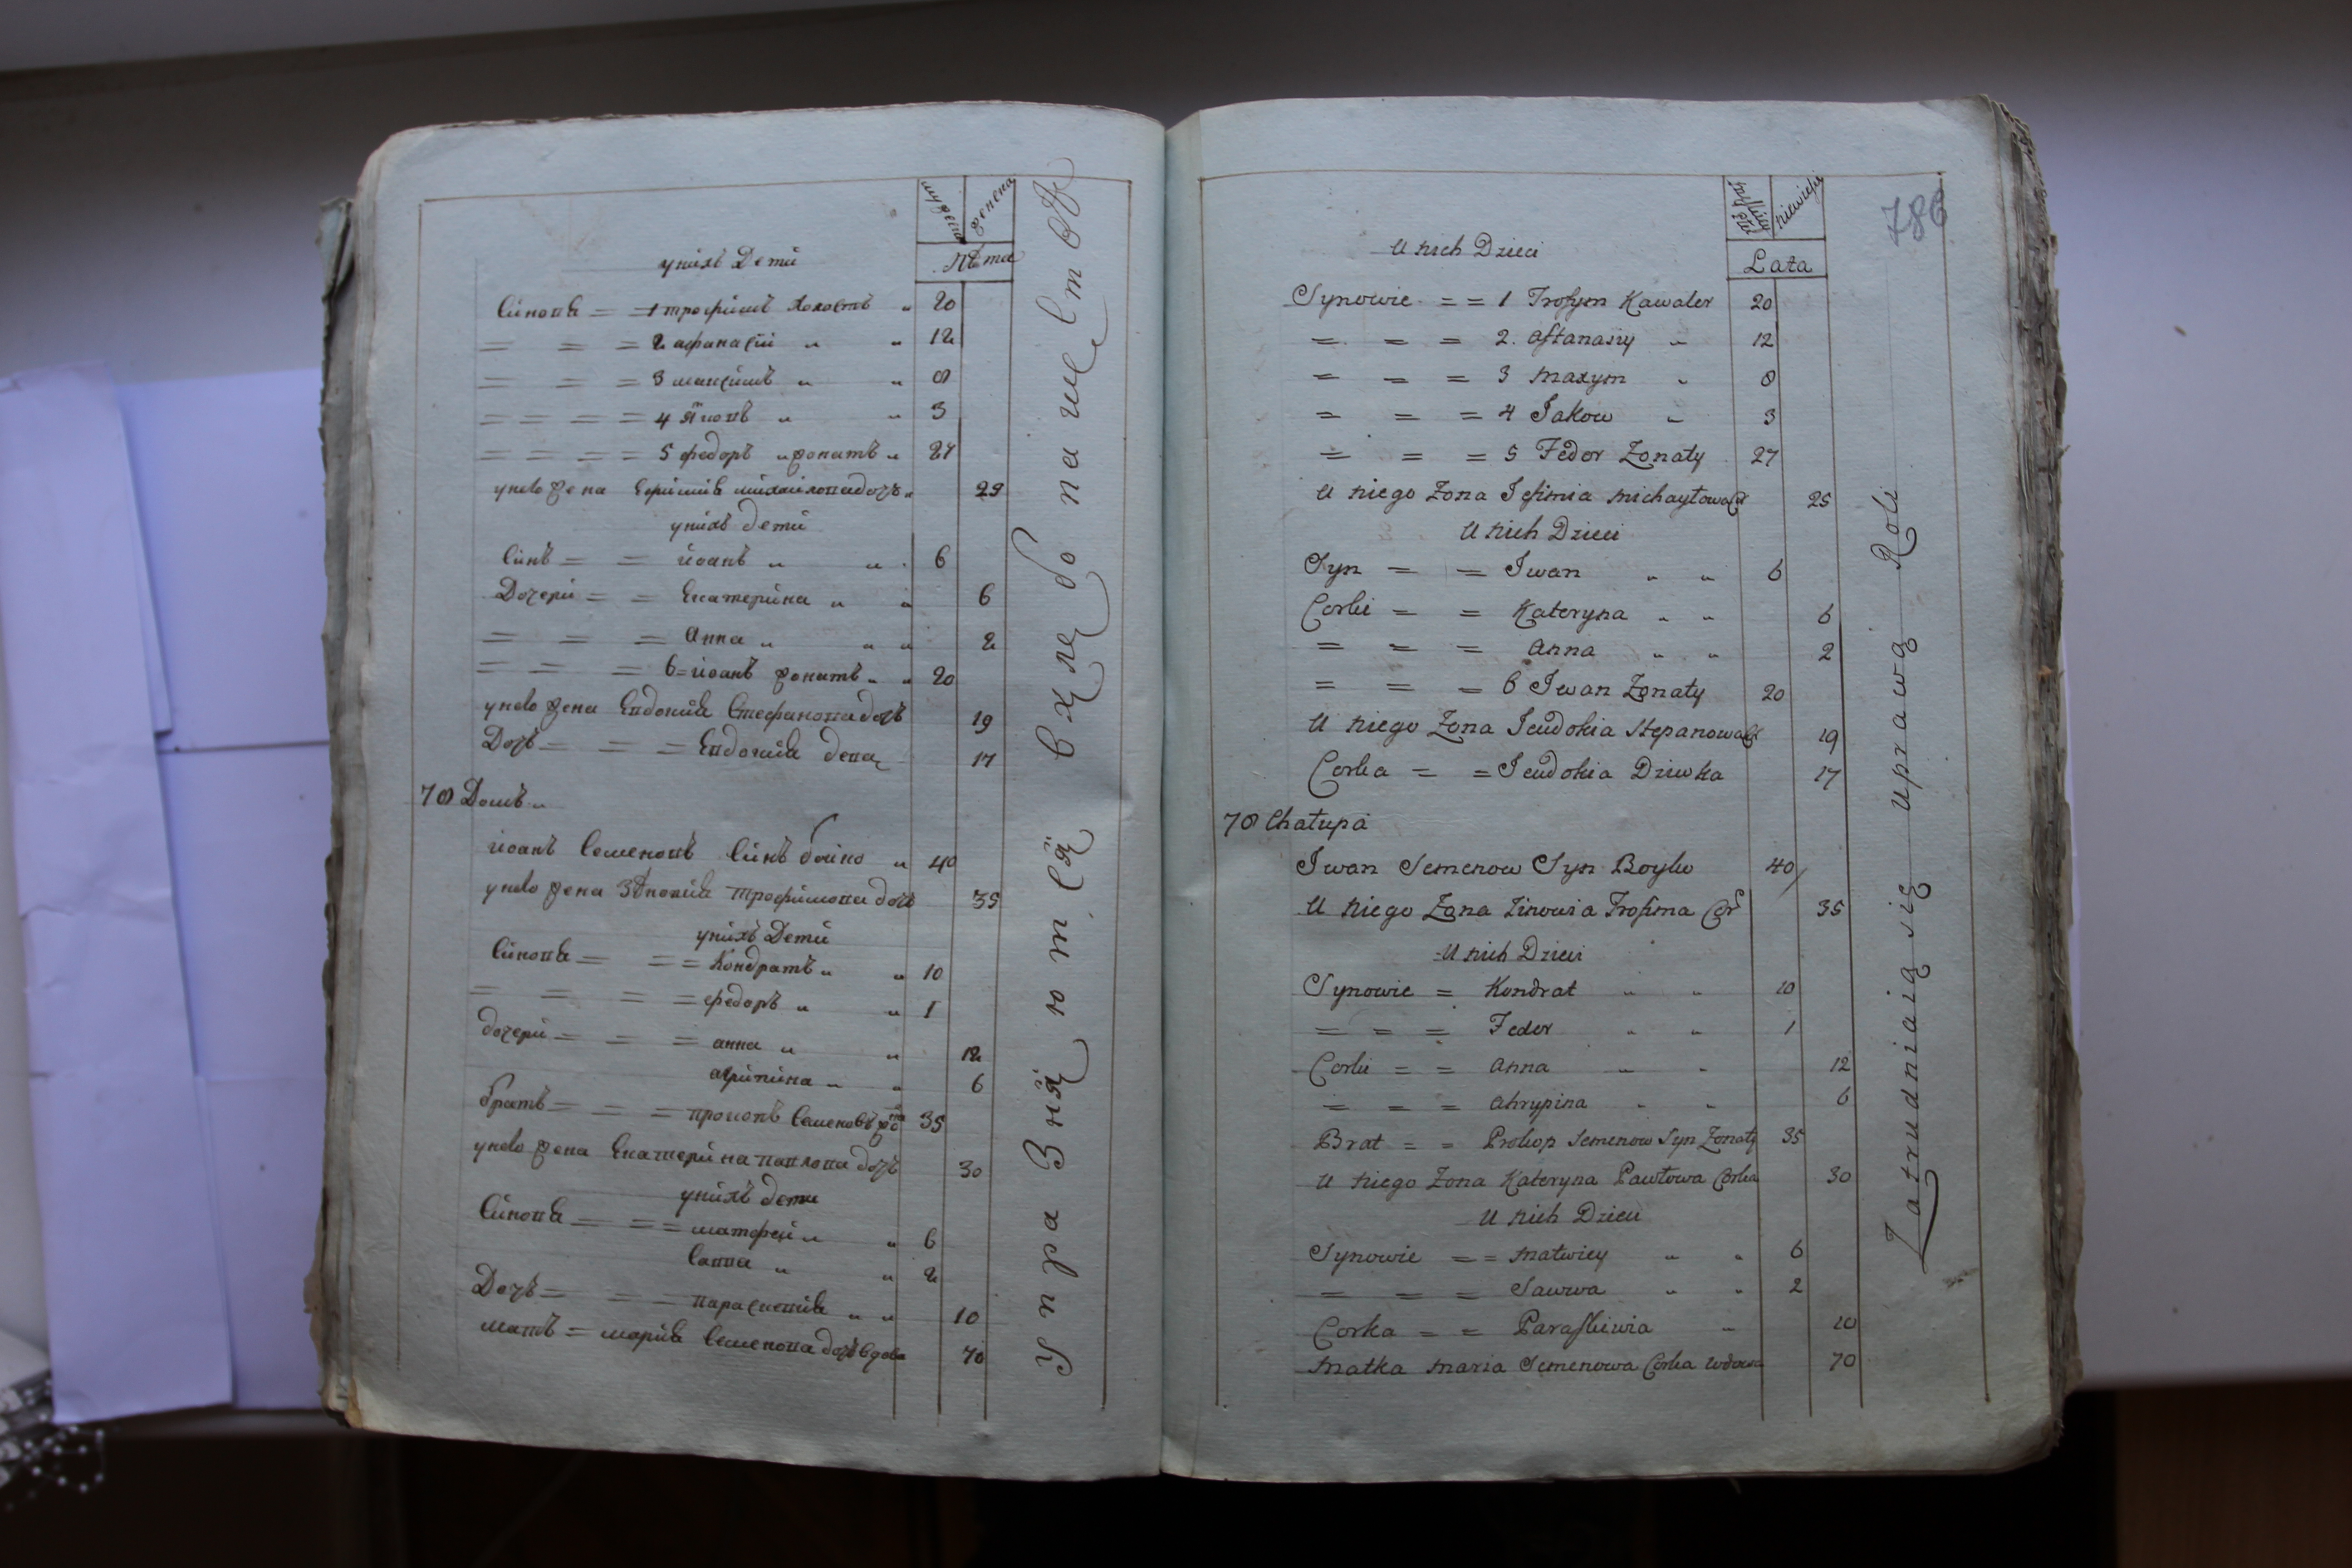 женска
Лѣта
унихъ Дети
Синовя = = 1 трофимъ холостъ „ 20
= = = 2 афанасій „ „ 12
= = = 3 максимъ „ „ 8
= = = = 4 Яковъ „ „ 3
= = = = 5 федоръ „ жонатъ „ 27
унего жена Ефимія михайловадочь „ 25
унихъ дети
Синъ = = иоанъ „ „ 6
Дочери = = Екатерина „ „ 6
= = = Анна „ „ „ 2
= = = 6 = иоанъ жонатъ „ „ 20
унего жена Евдокия Стефановадочь 19
Дочь = = = Евдокия девка 17
70 Домъ „
иоанъ Семеновъ Синъ бойко „ 40
унего жена Зѣновия трофимова дочь 35
унихъ Дети
Синовя = = = Кондратъ „ „ 10
= = = = федоръ „ „ 1
дочери = = = анна „ „ 12
агрипина „ „ 6
братъ = = = прокопъ Семеновъ 35
унего жена Екатерина павлова дочь 30
унихъ дети
Синовя = = = матфей „ „ 6
Савва „ „ 2
Дочь = = = параскевия „ „ 10
мать = мария Семенова дочь вдова 70
Упражняются в хлебопашестве
786
niewieści
Lata
U nich Dzieci
Synowie = = 1 Trofym Kawaler 20
= = = 2. Aftanasiy „ 12
= = = 3 Maxym „ 8
= = = 4 Jakow „ 3
= = = 5 Fedor Żonaty 27
U niego Żona Jefimia Michayłowa 25
U nich Dzieci
Syn = = Iwan „ „ 6
Corki = = Kateryna „ „ 6
= = = Anna „ „ 2
= = = 6 Iwan Żonaty 20
U niego Żona Jeudokia Stepanowa 19
Corka = = Jeudokia Dziewka 17
70 Chałupa
Iwan Semenow Syn Boyko 40
U niego Żona Zinowia Trofima Cor 35
U nich Dzieci
Synowie = Kondrat „ „ 10
= = = Fedor „ „ 1
Corki = = Anna „ „ 12
= = = Ahrypina „ „ 6
Brat = = Prokop Semenow Syn Żonaty 35
U niego Żona Kateryna Pawłowa Corka 30
U nich Dzieci
Synowie = = Matwiey „ „ 6
= = = Sawwa „ „ 2
Corka = = Paraskiwia „ 10
Matka Maria Semenowa Corka Wdowa 70
Zatrudniaią się uprawą Roli